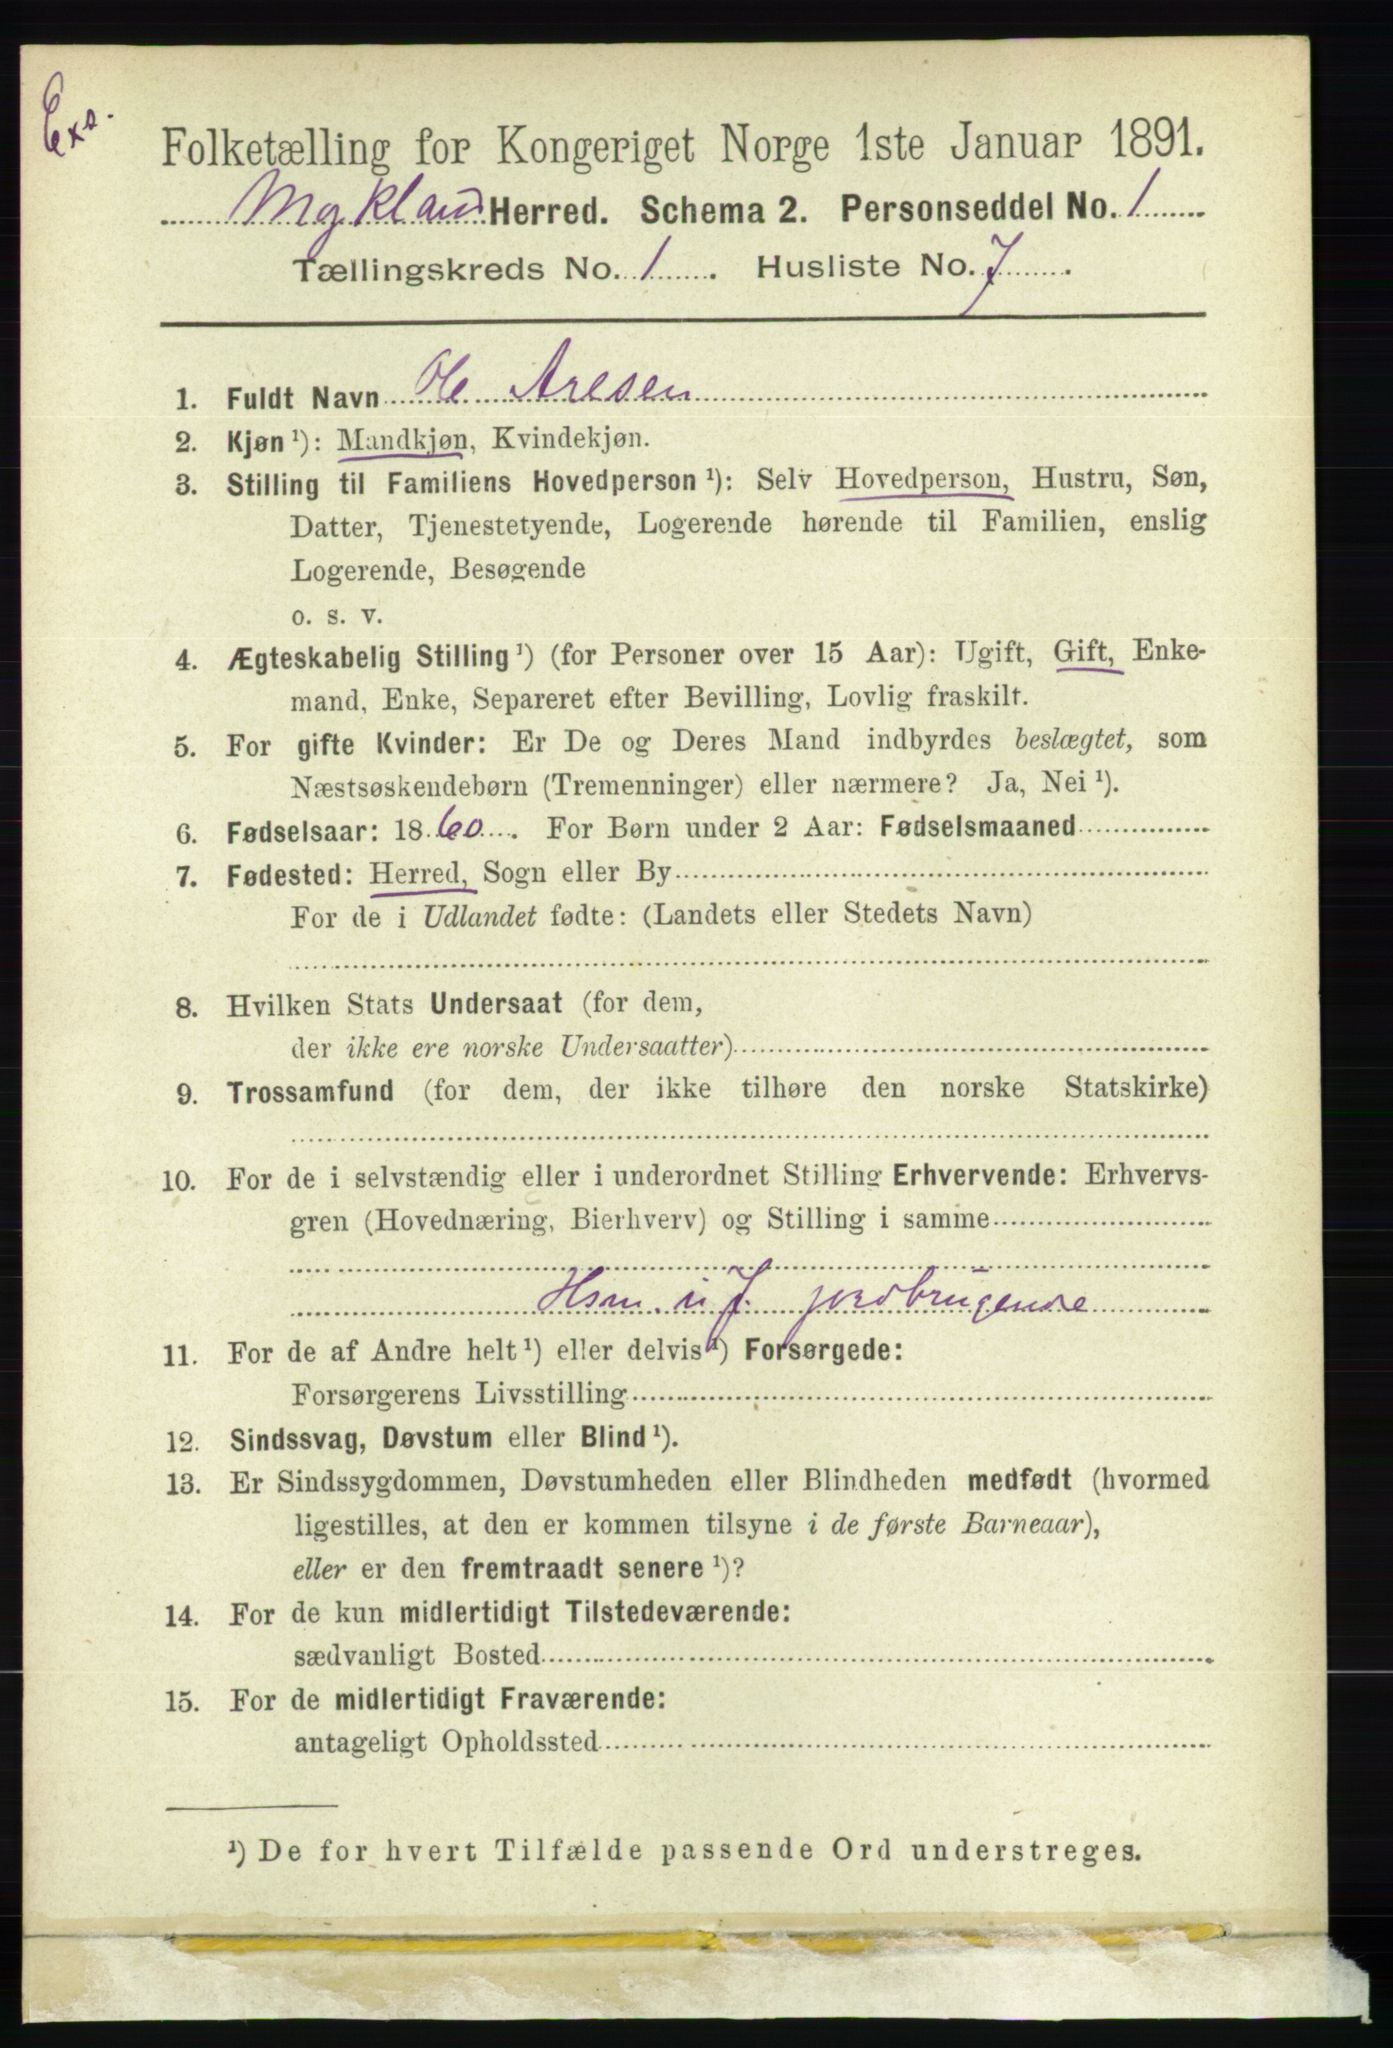 Exs.
Folketælling for Kongeriget Norge 1ste Januar 1891.
Mykland Herred. Schema 2. Personseddel No. 1
Tællingskreds No. 1. Husliste No. 7.
1. Fuldt Navn Ole Aresen
2. Kjøn ¹): Mandkjøn, Kvindekjøn.
3. Stilling til Familiens Hovedperson ¹): Selv Hovedperson, Hustru, Søn,
Datter, Tjenestetyende, Logerende hørende til Familien, enslig
Logerende, Besøgende
o. s. v.
4. Ægteskabelig Stilling ¹) (for Personer over 15 Aar): Ugift, Gift, Enke-
mand, Enke, Separeret efter Bevilling, Lovlig fraskilt.
5. For gifte Kvinder: Er De og Deres Mand indbyrdes beslægtet, som
Næstsøskendebørn (Tremenninger) eller nærmere? Ja, Nei ¹).
6. Fødselsaar: 1860. For Børn under 2 Aar: Fødselsmaaned
7. Fødested: Herred, Sogn eller By
For de i Udlandet fødte: (Landets eller Stedets Navn)
8. Hvilken Stats Undersaat (for dem,
der ikke ere norske Undersaatter)
9. Trossamfund (for dem, der ikke tilhøre den norske Statskirke)
10. For de i selvstændig eller i underordnet Stilling Erhvervende: Erhvervs-
gren (Hovednæring, Bierhverv) og Stilling i samme
Hsm. u J. jordbrugende
11. For de af Andre helt ¹) eller delvis ¹) Forsørgede:
Forsørgerens Livsstilling
12. Sindssvag, Døvstum eller Blind ¹).
13. Er Sindssygdommen, Døvstumheden eller Blindheden medfødt (hvormed
ligestilles, at den er kommen tilsyne i de første Barneaar),
eller er den fremtraadt senere ¹)?
14. For de kun midlertidigt Tilstedeværende:
sædvanligt Bosted
15. For de midlertidigt Fraværende:
antageligt Opholdssted
¹) De for hvert Tilfælde passende Ord understreges.